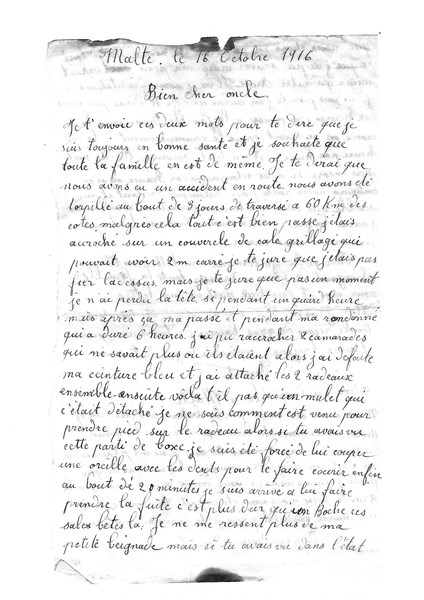 Malte. le 16 Octobre 1916
Bien cher oncle.
Je t'envoie ces deux mots pour te dire que je
suis toujours en bonne santé et je souhaite que
toute la famille en est de même. Je te dirai que
nous avons eu un accident en route nous avons été
torpillé au bout de 3 jours de traversé a 60 Km des
cotes, malgrés cela tout c'est bien passé j'étais
accroché sur un couvercle de cale grillagé qui
pouvait avoir 2 m. carré je te jure que j'étais pas
fier lacessus mais je te jure que pas un moment
je n'ai perdu la tête si pendant un quare heure
mais après ça ma passé et pendant ma rondonné
qui a duré 6 heures j'ai pu raccrocher 2 camarades
qui ne savait plus ou ils étaient alors j'ai defaite
ma ceinture bleu et j'ai attaché les 2 radeaux
ensemble ensuite voila t'il pas qu'un mulet qui
c'était détaché je ne sais comment est venu pour
prendre pied sur le radeau alors si tu avais vu
cette parti de boxe je suis été forcé de lui couper
une oreille avec les dents pour le faire courir enfin
au bout dé 20 minutes je suis arrive a lui faire
prendre la fuite c'est plus dur qu'un Boche ces
sales bêtes la. Je ne me ressent plus de ma
petite beignade mais si tu avais vu dans l'état